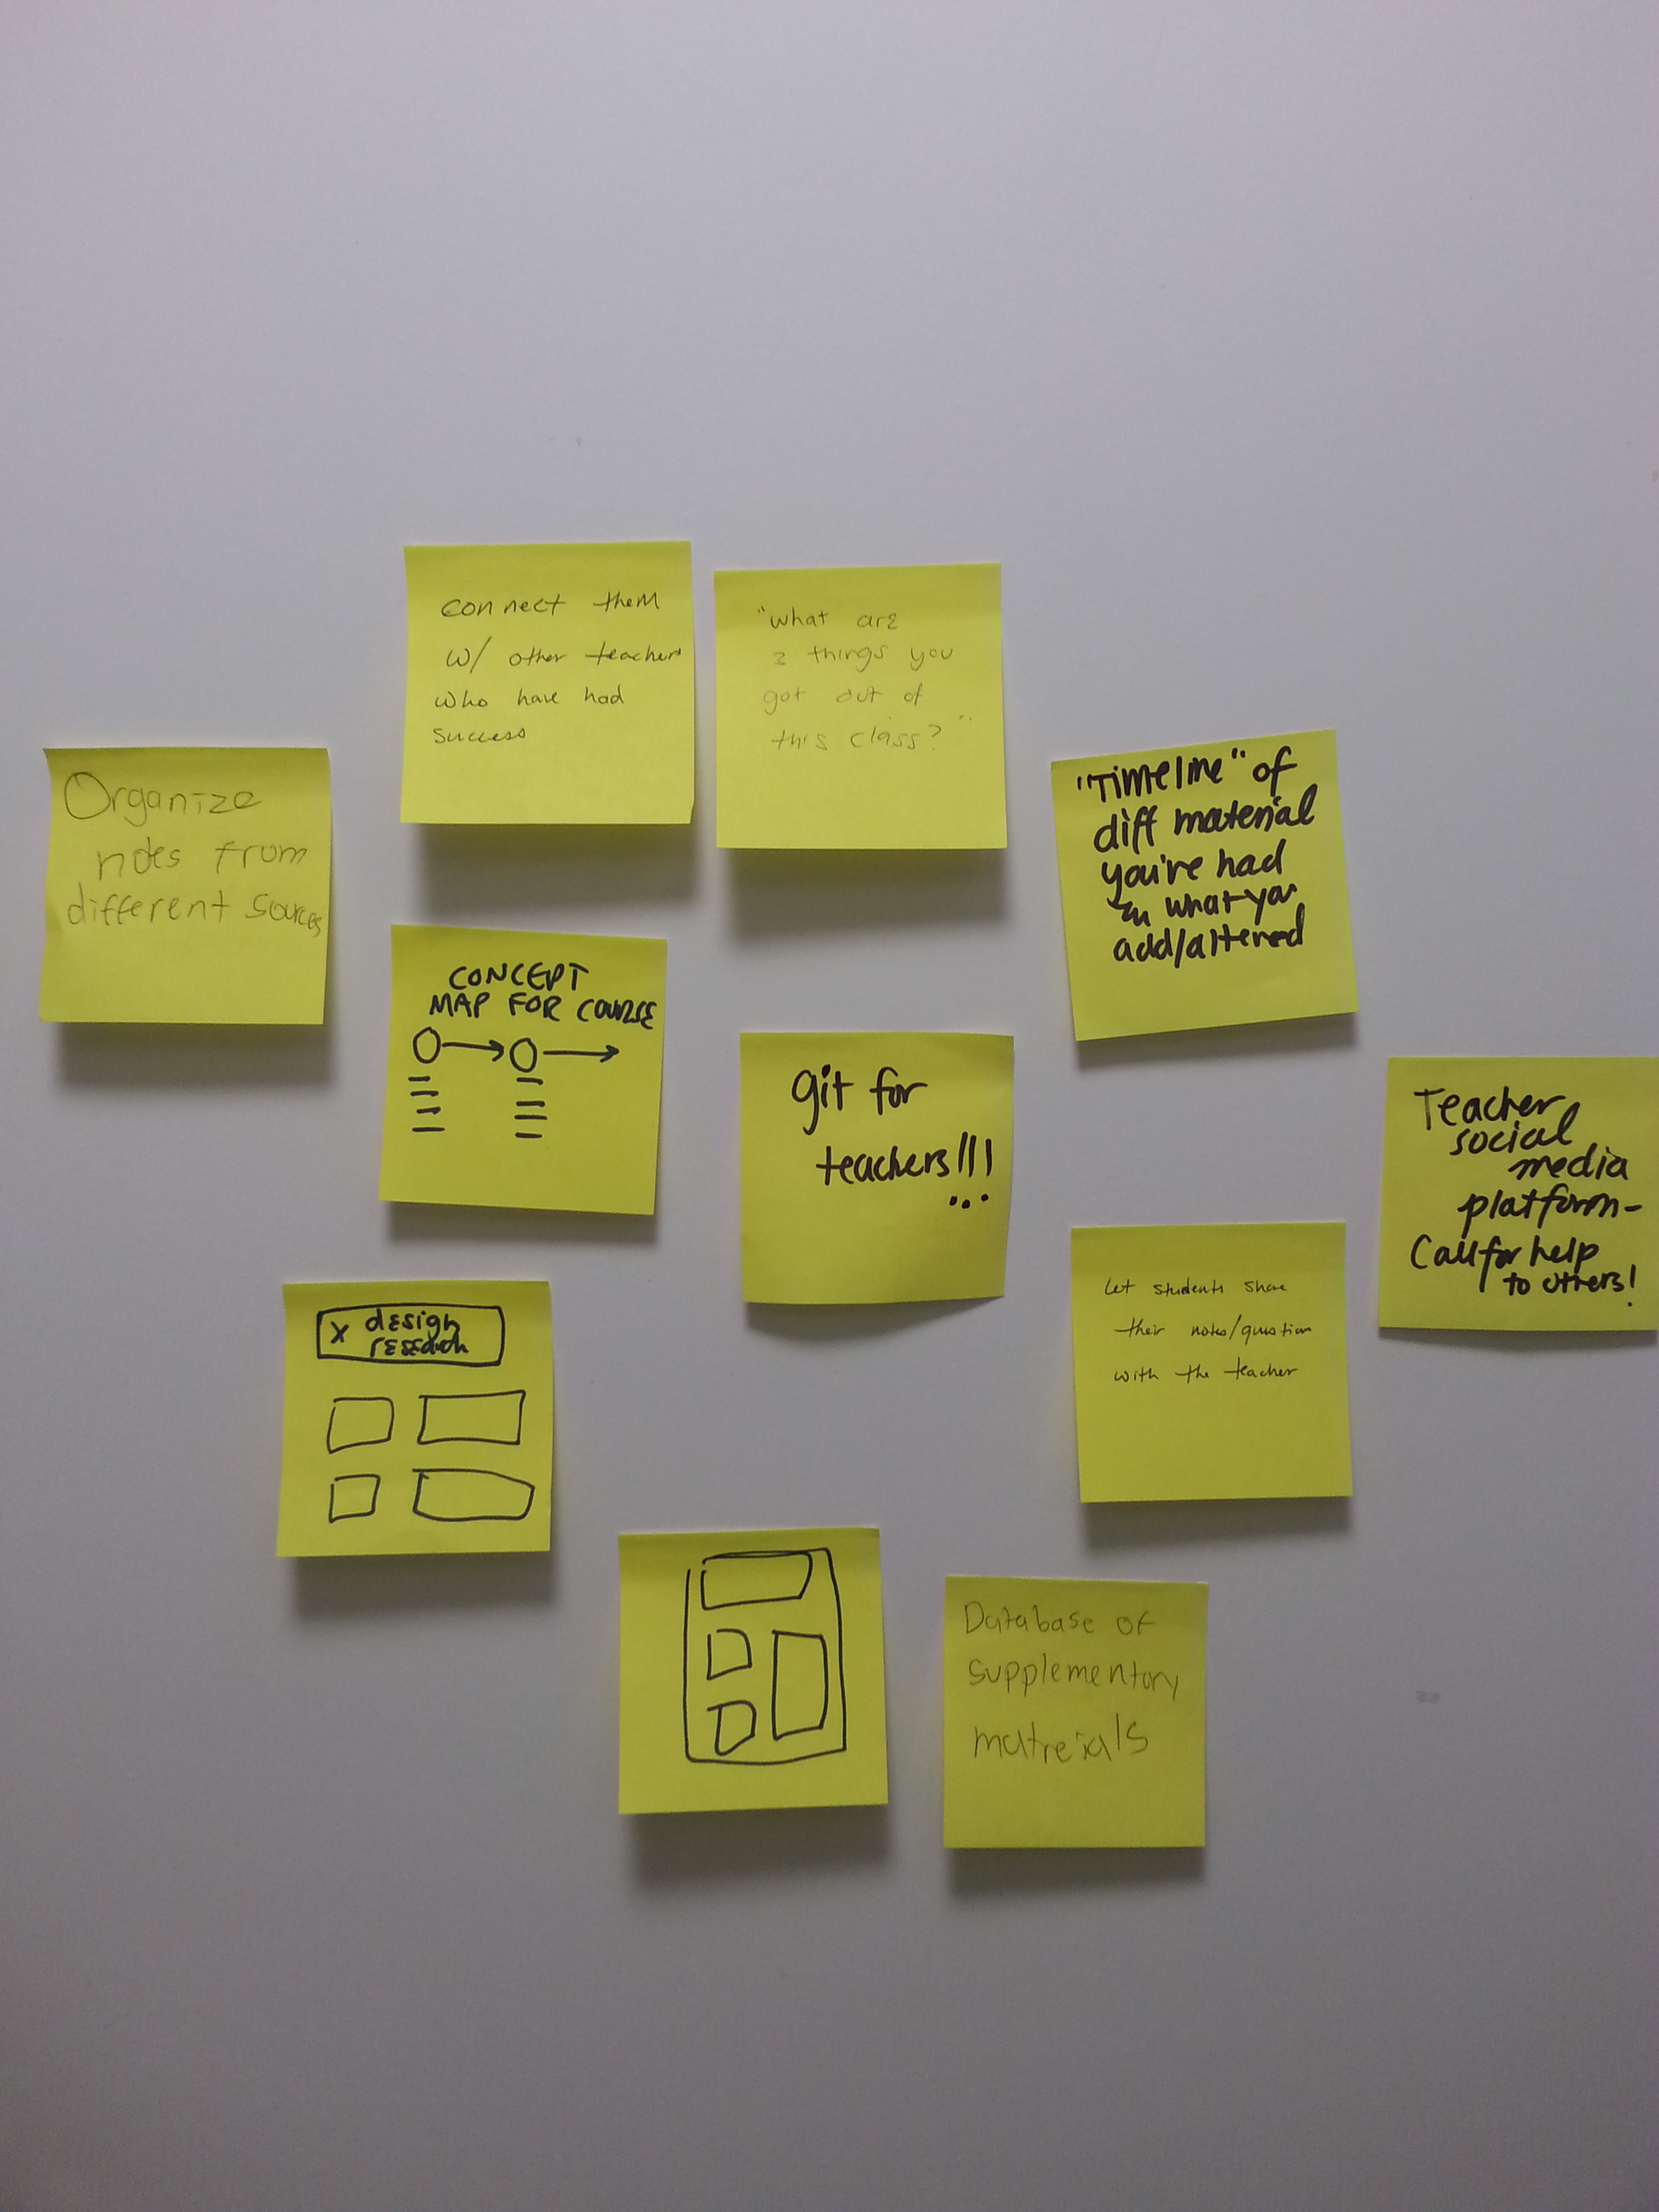 connect them
w/ other teachers
who have had
success
"what are
things you
got out of
this class?"
Organize
notes from
different sources
"Timeline" of
diff material
you've had
what you
add/altered
CONCEPT
MAP FOR COURSE
git for
teachers!!!
...
Teacher
social
media
platform-
Call for help
to others!
Let students share
their notes/question
with the teacher
x design
research
Database of
supplementary
matreials